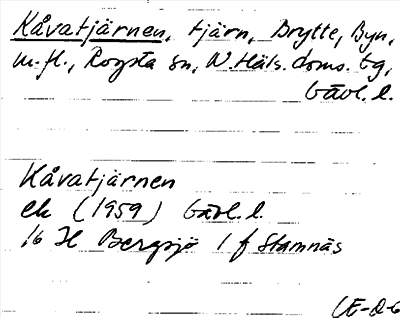 Kåvatjärnen, tjärn, Brytte, Byn,
m.fl., Rogsta sn, N. Häls. doms. tg,
Gävl. l.
Kåvatjärnen
ek (1959) Gävl. l.
16 H Bergsjö 1 f Stamnäs